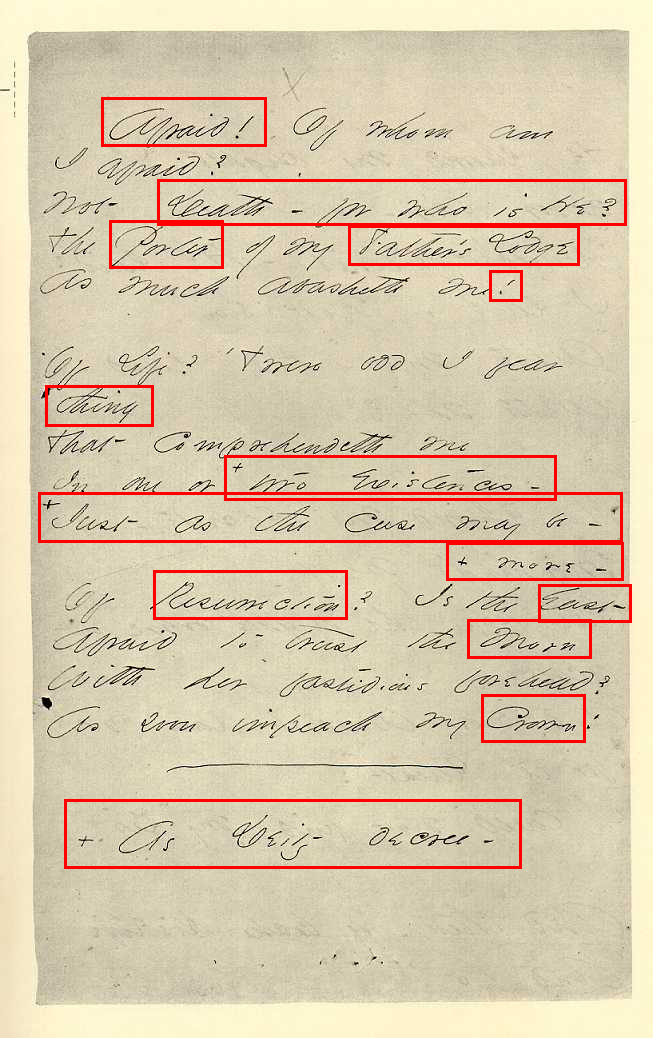 Afraid! Of whom am
I afraid?
Not Death – for who is He?
The Porter of my Father's Lodge
As much abasheth me!
Of Life? 'Twere odd I fear
thing
That comprehendeth me
In one or + two existences –
+ Just as the case may be –
+ more –
Of Resurrection? Is the East
Afraid to trust the Morn
With her fastidious forehead?
As soon impeach my Crown!
+ As Deity decree –